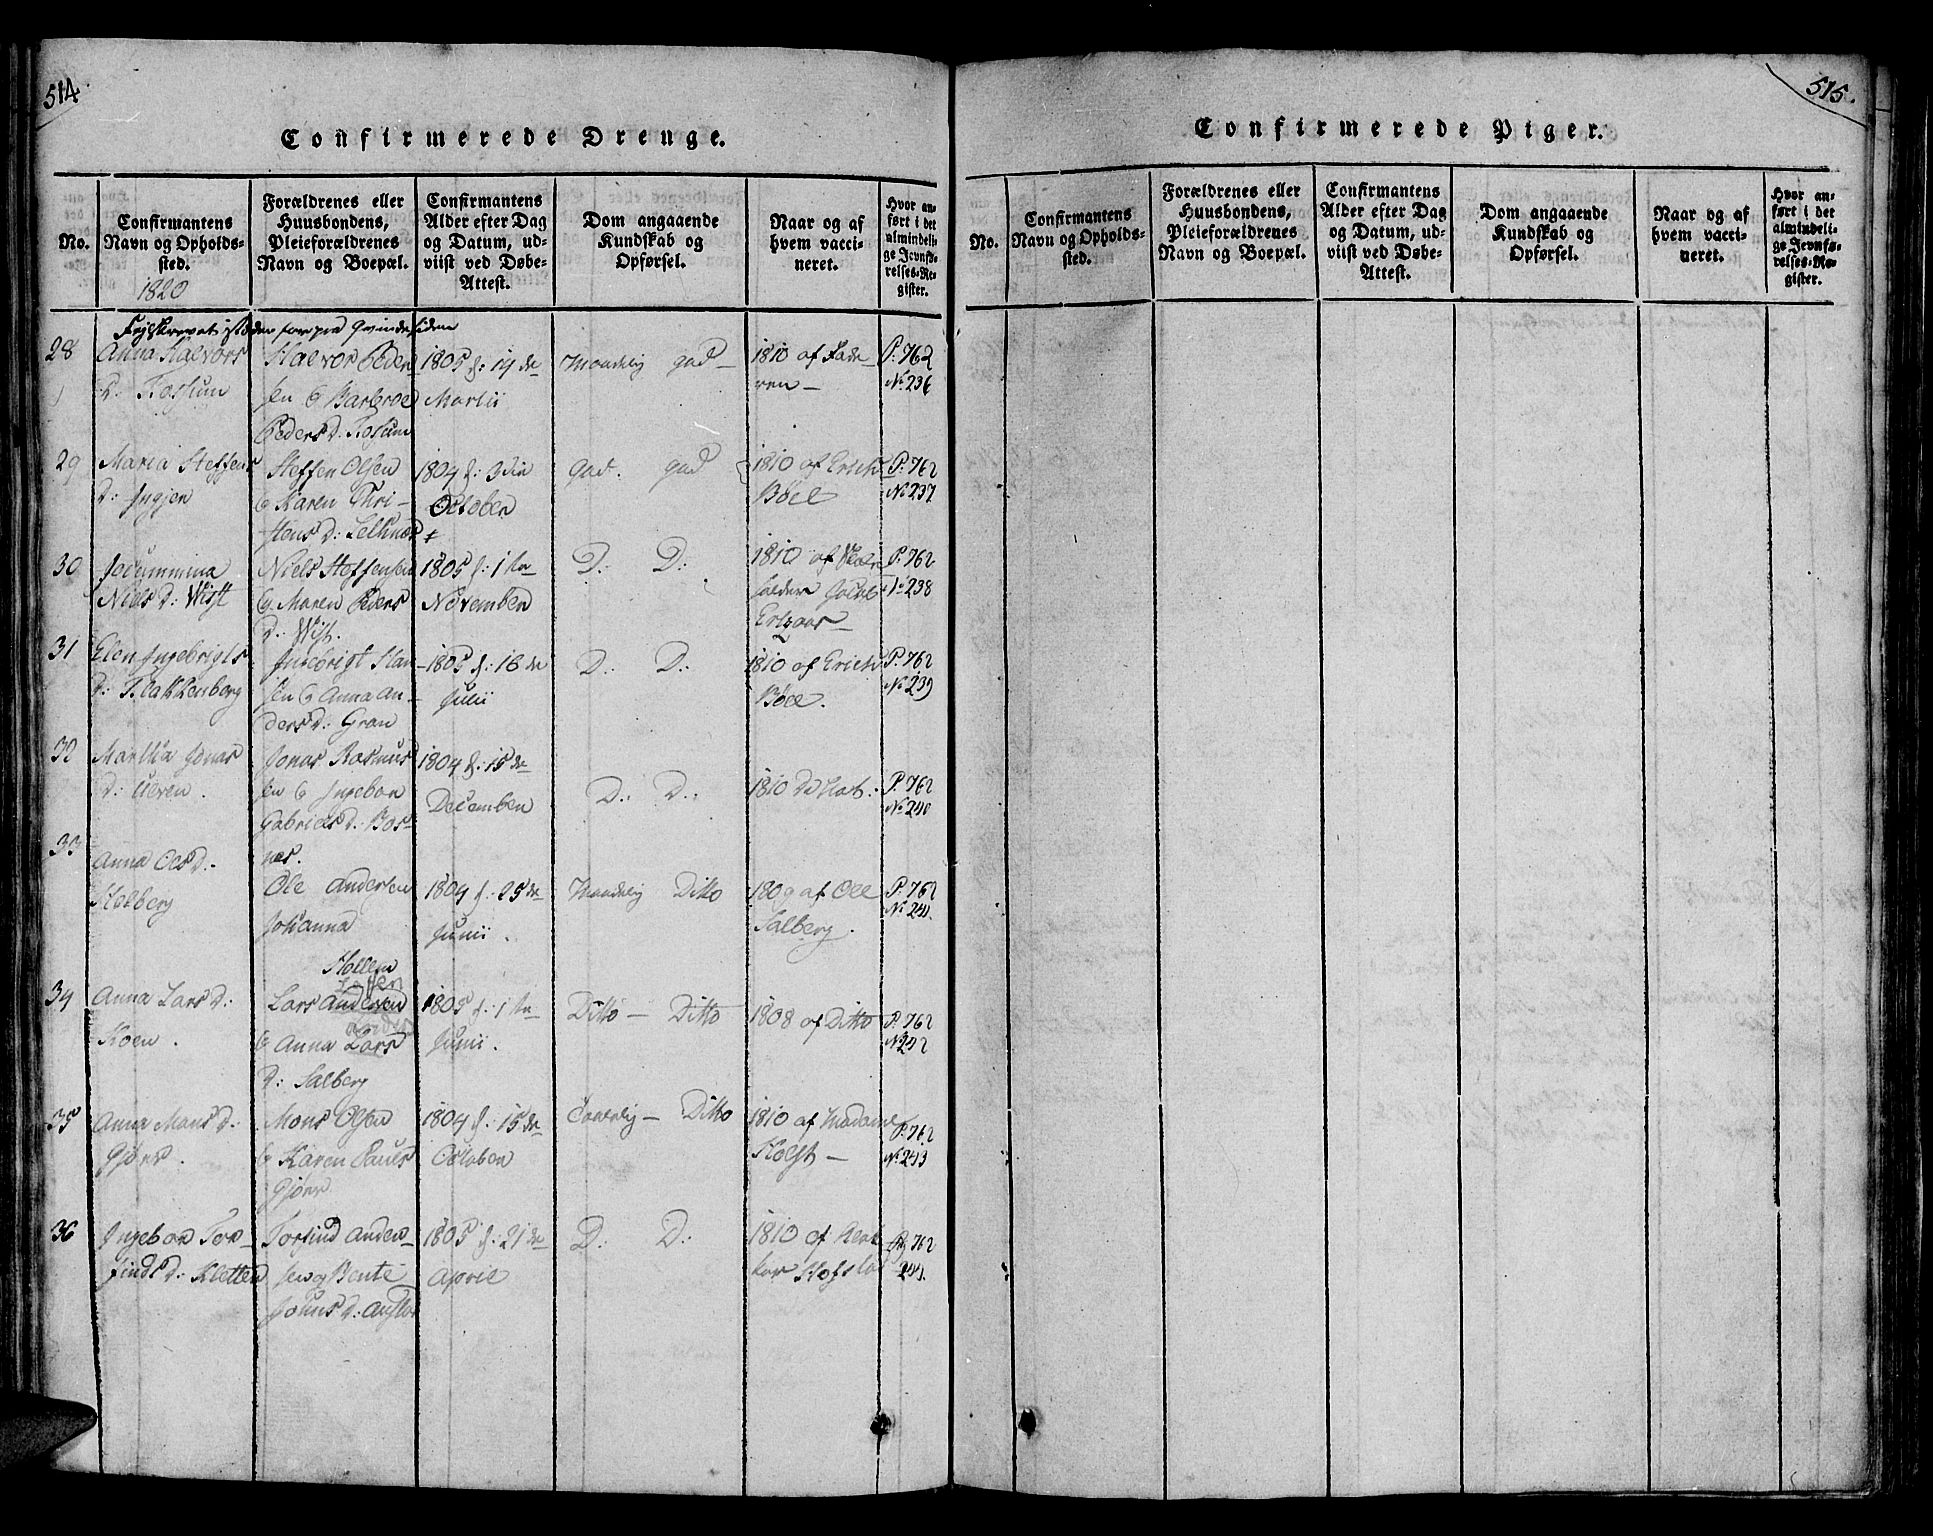 514
Confirmerede Drenge.
No.
Confirmantens
Navn og Opholds-
sted.
1820
Forældrenes eller
Huusbondens,
Pleieforældrenes
Navn og Boepæl.
Confirmantens
Alder efter Dag
og Datum, ud-
viist ved Døbe-
Attest.
Dom angaaende
Kundskab og
Opførsel.
Naar og af
hvem vacci-
neret.
Hvor an-
ført i det
almindeli-
ge Jevnfø-
relses-Re-
gister.
Fejlskrevet istæden for paa Qvindesiden
28
Anna Halvors
D: Fossum
Halvor Peder-
sen & Barbroe
Peders D. Fossum
1805 d: 19 de
Martii
Maadelig god -
1810 af Fade
ren -
P. 762
No. 236
29
Maria Steffens
D:
Steffen Olsen
& Karen Chri-
stens D:
1804 d: 3die
October
God. god
1810 af Erich
Bøel
P. 762
No 237
30
Niels D: Wist
Niels Steffensen
& Maren Peders
D: Wist.
1805 d: 1 ste
November
D: D:
1810 af
P. 762
No 238
31
Elen Ingebrigts
D:
Ingebrigt Han-
sen & Anna An-
ders D: Gran
1805 d: 18 de
Julii
D: D:
1810 af Erich
Bøel.
P. 762
No 239
32
Martha Jonas
D:
Jonas Rasmus
sen & Ingebor
Gabriels D: Bos-
nes.
1804 d: 15 de
December
D: D:
1810
P. 762
No 240
33
Anna Ols D.
Ole Andersen
Johanna
1804 d: 25 de
Junii.
Maadelig Ditto
1809 af Ole
Salberg.
P. 762
No 241.
34
Anna Lars D:
Koen.
Lars Andersen
& Anna Lars
D: Salberg
1805 d: 1 ste
Junii.
Ditto - Ditto
1808 af Ditto
P. 762
No 242
35
Anna Mons D:
Gjørv.
Mons Olsen
& Karen Pauls
Gjørv
1804 d: 15 de
October
Ditto
1810 af Madame
Holst -
P. 762
No 243
36
Ingebor Tor-
finds D: Kletten
Torfind Ander-
sen & Bente
Johns D:
1805 d: 21 de
April
D: D:
1810 af
P. 762
244.
515.
Confirmerede Piger.
No.
Confirmantens
Navn og Opholds-
sted.
Forældrenes eller
Huusbondens,
Pleieforældrenes
Navn og Boepæl.
Confirmantens
Alder efter Dag
og Datum, ud-
viist ved Døbe-
Attest.
Dom angaaende
Kundskab og
Opførsel.
Naar og af
hvem vacci-
neret.
Hvor an-
ført i det
almindeli-
ge Jevnfø-
relses-Re-
gister.